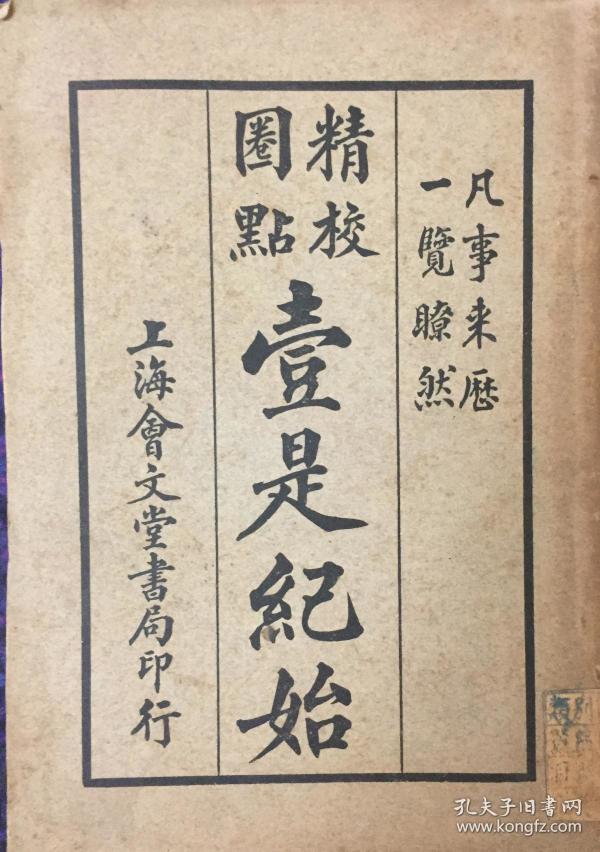 凡事来歷
一覽瞭然
精校
圈點
壹是紀始
上海會文堂書局印行
孔夫子旧书网
www.kongfz.com